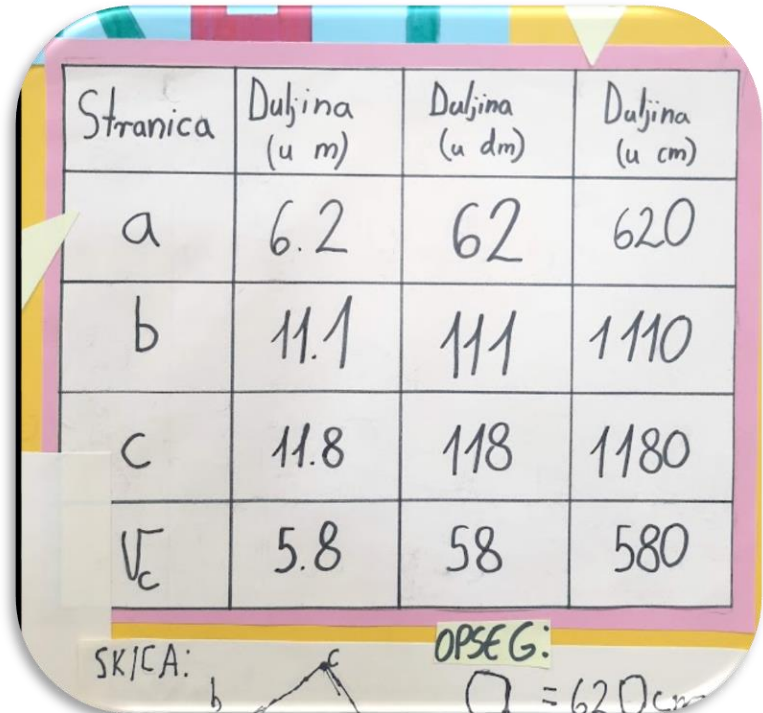 Stranica Duljina (u m) Duljina (u dm) Duljina (u cm)
a 6.2 62 620
b 11.1 111 1110
c 11.8 118 1180
Vc 5.8 58 580
OPSEG:
SKICA:
C
b
a = 620cm